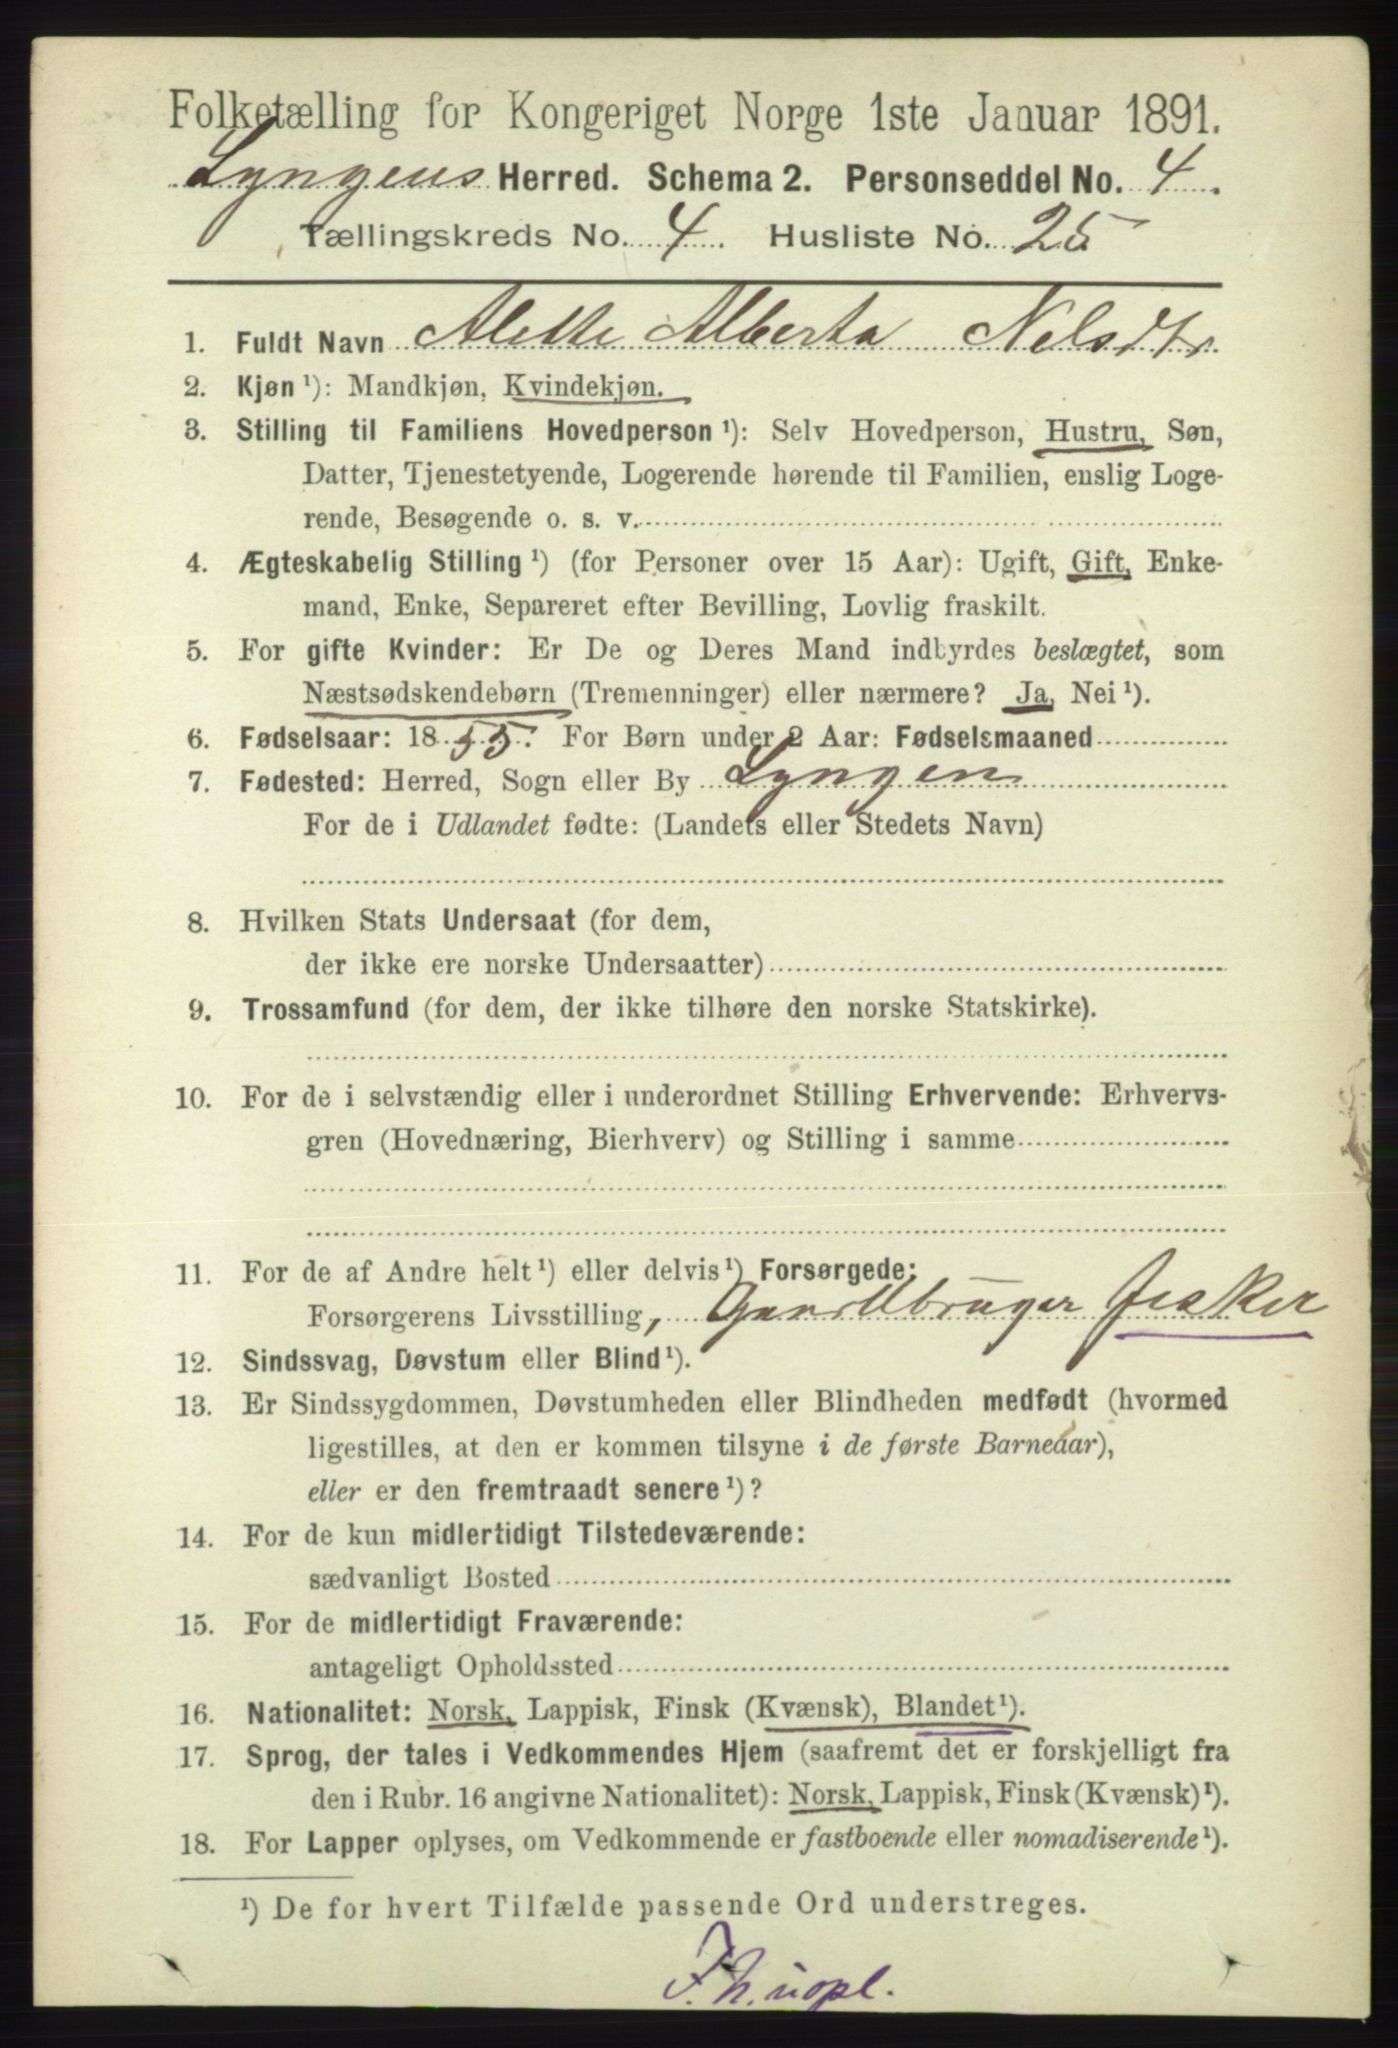 Folketælling for Kongeriget Norge 1ste Januar 1891.
Lyngens Herred. Schema 2. Personseddel No. 4.
Tællingskreds No. 4. Husliste No. 25
1. Fuldt Navn Alette Alberta Nelsdtr.
2. Kjøn ¹): Mandkjøn, Kvindekjøn.
3. Stilling til Familiens Hovedperson ¹): Selv Hovedperson, Hustru, Søn,
Datter, Tjenestetyende, Logerende hørende til Familien, enslig Loge-
rende, Besøgende o. s. v.
4. Ægteskabelig Stilling ¹) (for Personer over 15 Aar): Ugift, Gift, Enke-
mand, Enke, Separeret efter Bevilling, Lovlig fraskilt.
5. For gifte Kvinder: Er De og Deres Mand indbyrdes beslægtet, som
Næstsødskendebørn (Tremenninger) eller nærmere? Ja, Nei ¹).
6. Fødselsaar: 1855. For Børn under 2 Aar: Fødselsmaaned
7. Fødested: Herred, Sogn eller By Lyngen
For de i Udlandet fødte: (Landets eller Stedets Navn)
8. Hvilken Stats Undersaat (for dem,
der ikke ere norske Undersaatter)
9. Trossamfund (for dem, der ikke tilhøre den norske Statskirke).
10. For de i selvstændig eller i underordnet Stilling Erhvervende: Erhvervs-
gren (Hovednæring, Bierhverv) og Stilling i samme
11. For de af Andre helt ¹) eller delvis ¹) Forsørgede:
Forsørgerens Livsstilling, Gaardbruger Fisker
12. Sindssvag, Døvstum eller Blind ¹).
13. Er Sindssygdommen, Døvstumheden eller Blindheden medfødt (hvormed
ligestilles, at den er kommen tilsyne i de første Barneaar),
eller er den fremtraadt senere ¹)?
14. For de kun midlertidigt Tilstedeværende:
sædvanligt Bosted
15. For de midlertidigt Fraværende:
antageligt Opholdssted
16. Nationalitet: Norsk, Lappisk, Finsk (Kvænsk), Blandet ¹).
17. Sprog, der tales i Vedkommendes Hjem (saafremt det er forskjelligt fra
den i Rubr. 16 angivne Nationalitet): Norsk, Lappisk, Finsk (Kvænsk) ¹).
18. For Lapper oplyses, om Vedkommende er fastboende eller nomadiserende ¹).
¹) De for hvert Tilfælde passende Ord understreges.